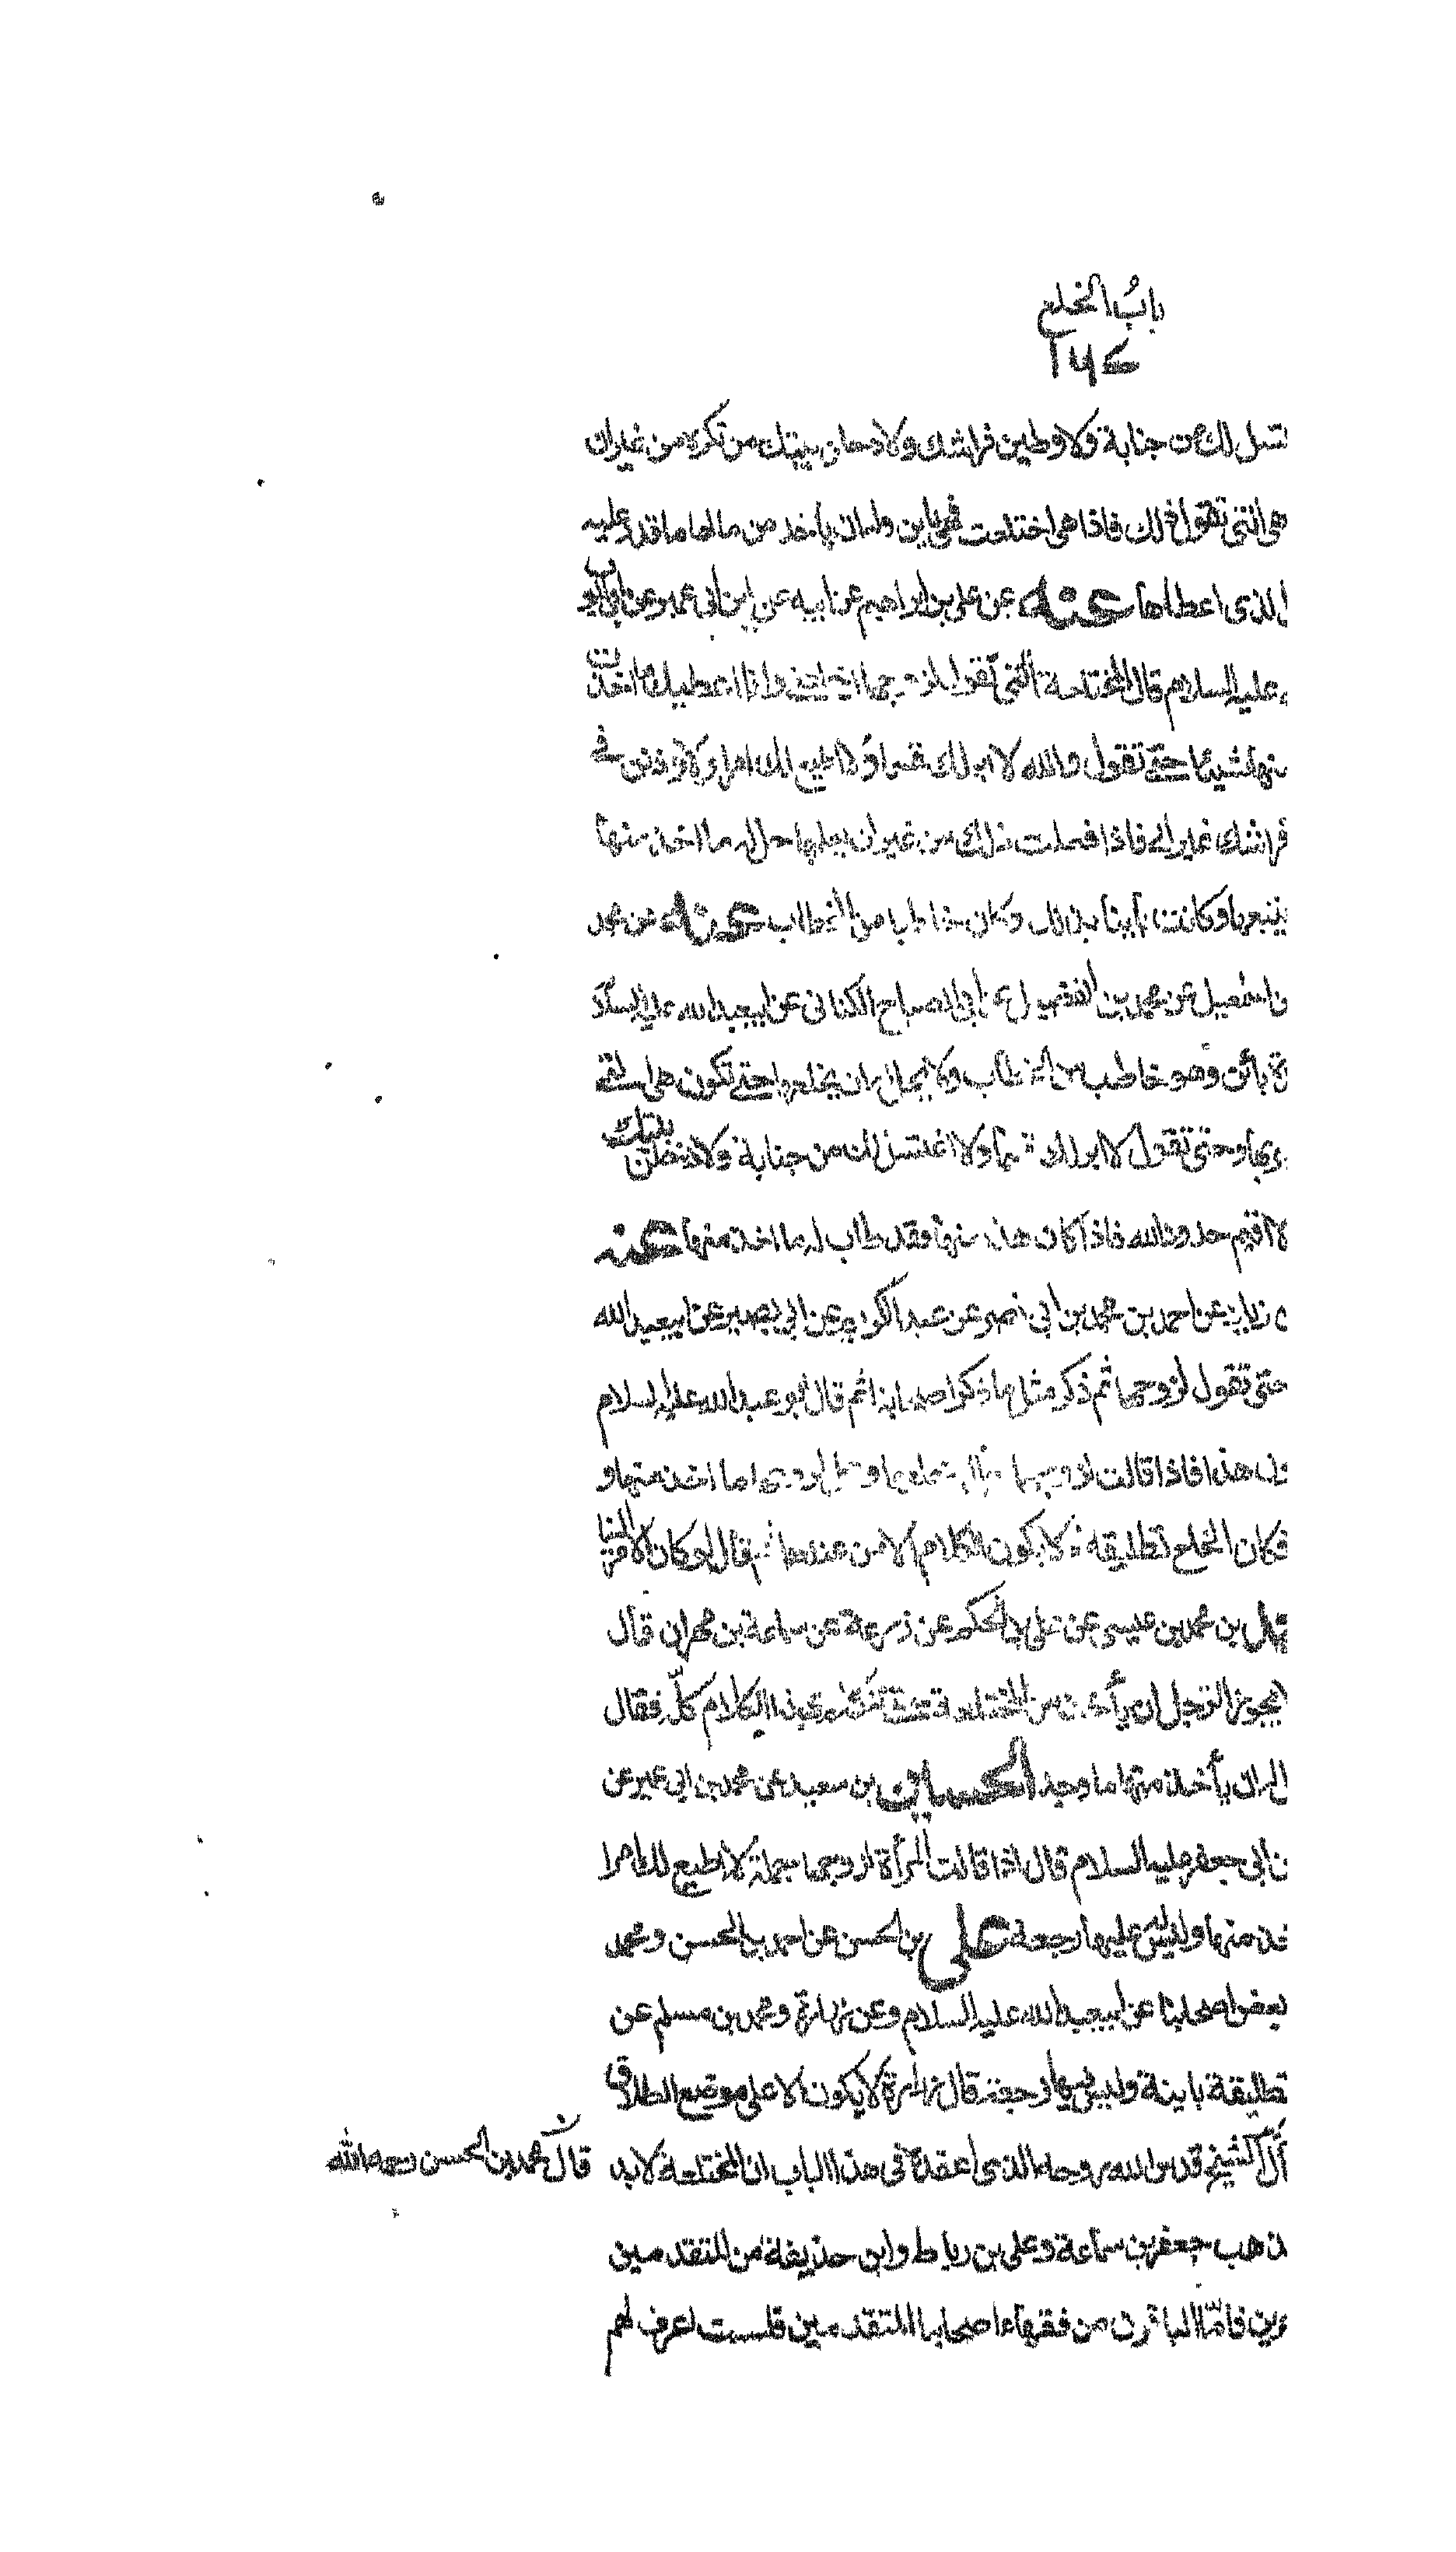 باب الخلع
١٦٤
لك من جنابة ولاوطين فراشك ولادخلن بيتك من تكره من غيران
هى التى تقول ذلك فاذا هى اختلعت فهى باين وله ان ياخذ من مالها ما قدر عليه
الذى اعطاها عنه عن على بن ابراهيم عن ابيه عن ابن ابى عمير عن
عليه السلام قال المختلعة التى تقول لزوجها اخلعنى وانا اعطيك ما اخذت
منها شيئا حتى تقول والله لا ابر لك قسما ولا اطيع لك امرا ولاوذنن فى
فراشك غيرك فاذا فعلت ذلك من غير ان يعلمها حل له ما اخذ منها
وكانت باينا بذلك وكان خاطبا من الخطاب عنه عن محمد
اسمعيل عن محمد بن الفضيل عن ابى الصباح الكنانى عن ابيعبدالله عليه السلام
بائن وهو خاطب من الخطاب ولا يحل له ان يخلعها حتى تكون هى التى
وحتى تقول لا ابر لك قسما ولا اغتسل لك من جنابة ولادخلن بيتك
لا اقيم حدود الله فاذا كان هذا منها فقد طاب له ما اخذ منها عنه
زياد عن احمد بن محمد بن ابى نصر عن عبد الكريم عن ابى بصير عن ابيعبد الله
حتى تقول لزوجها ثم ذكر مثل ما ذكر اصحابه ثم قال ابو عبدالله عليه السلام
هذا فاذا قالت لزوجها ذلك حل خلعها وحل لزوجها ما اخذ منها و
فكان الخلع تطليقة ولا يكون الكلام الا من عندها ثم قال لو كان الامر الينا
بن محمد بن عيسى عن على بن الحكم عن زرعة عن سماعة بن مهران قال
لا يجوز للرجل ان يأخذ من المختلعة حتى تتكلم بهذا الكلام كله فقال
له ان يأخذ منها ما وجد الحسين بن سعيد عن محمد بن ابى عمير عن
ابى جعفر عليه السلام قال اذا قالت المرأة لزوجها جملة لا اطيع لك امرا
منها وليس له عليها رجعة على بن الحسن عن احمد بن الحسن ومحمد
بعض اصحابنا عن ابيعبدالله عليه السلام وعن زرارة ومحمد بن مسلم عن
تطليقة باينة وليس فيها رجعة قال زرارة لا يكون الا على موضع الطلاق
قال محمد بن الحسن رحمه الله
قال الشيخ قدس الله روحه الذى اعتمدة فى هذا الباب ان المختلعة لا بد
ذهب جعفر بن سماعة وعلى بن رباط وابن حذيفة من المتقدمين
فامّا الباقون من فقهاء اصحابنا المتقدمين فلست اعرف لهم